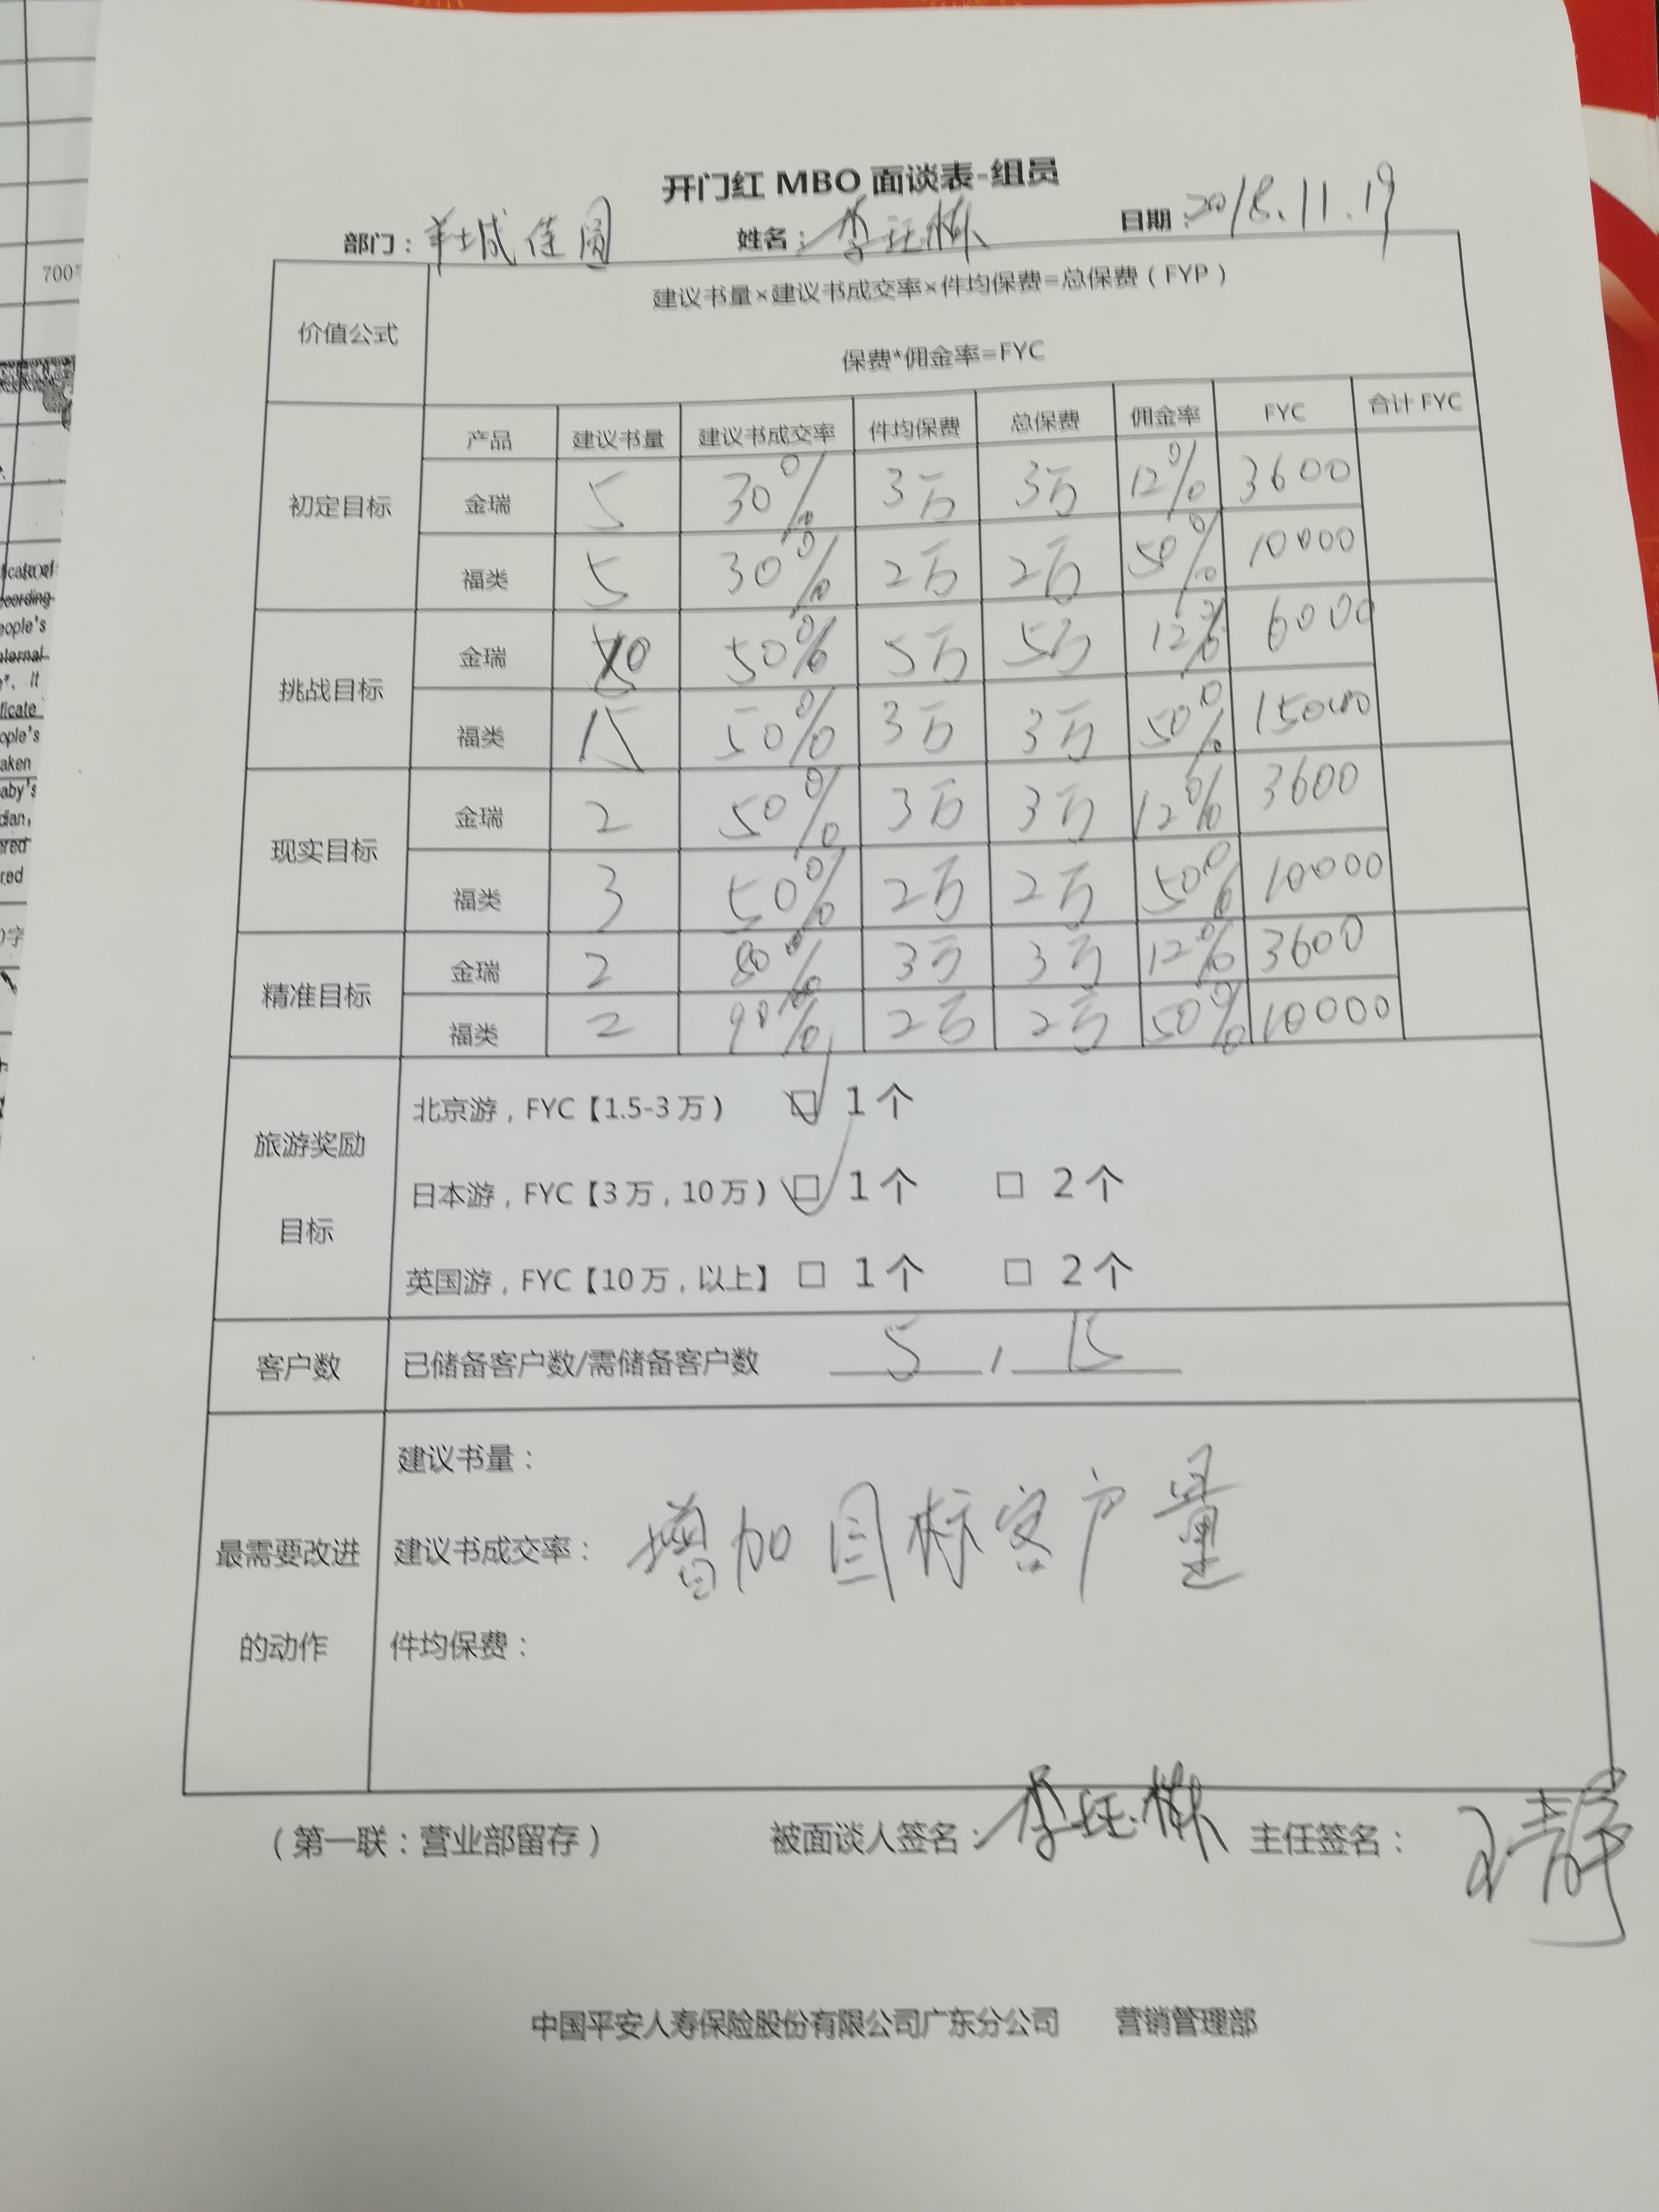 开门红 MBO 面谈表-组员
部门：羊城佳园 姓名：李珏栋 日期：2018.11.19
价值公式
建议书量×建议书成交率×件均保费=总保费（FYP）
保费*佣金率=FYC
产品 建议书量 建议书成交率 件均保费 总保费 佣金率 FYC 合计 FYC
初定目标
金瑞 5 30% 3万 3万 12% 3600
福类 5 30% 2万 2万 50% 10000
挑战目标
金瑞 10 50% 5万 5万 12% 6000
福类 15 50% 3万 3万 50% 15000
现实目标
金瑞 2 50% 3万 3万 12% 3600
福类 3 50% 2万 2万 50% 10000
精准目标
金瑞 2 80% 3万 3万 12% 3600
福类 2 90% 2万 2万 50% 10000
旅游奖励
目标
北京游，FYC【1.5-3 万） ☑ 1 个
日本游，FYC【3 万，10 万） ☑ 1 个 □ 2 个
英国游，FYC【10 万，以上】 □ 1 个 □ 2 个
客户数 已储备客户数/需储备客户数 5 / 15
最需要改进
的动作
建议书量：
建议书成交率：增加目标客户量
件均保费：
（第一联：营业部留存） 被面谈人签名：李珏栋 主任签名：王静
中国平安人寿保险股份有限公司广东分公司 营销管理部
700
ople's
aken
aby's
dian,
ered
red